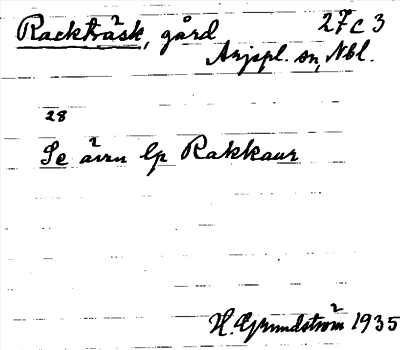 Rackträsk, gård 27c3
Arjspl. sn, Nbl.
28
Se även lp Rakkaur
H. Grundström 1935